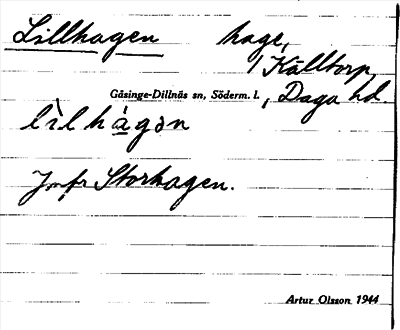 Lillhagen hage,
/ Källtorp,
Gåsinge-Dillnäs sn, Söderm. l., Daga hd.
lìlhágən
Jmfr Storhagen.
Artur Olsson 1944